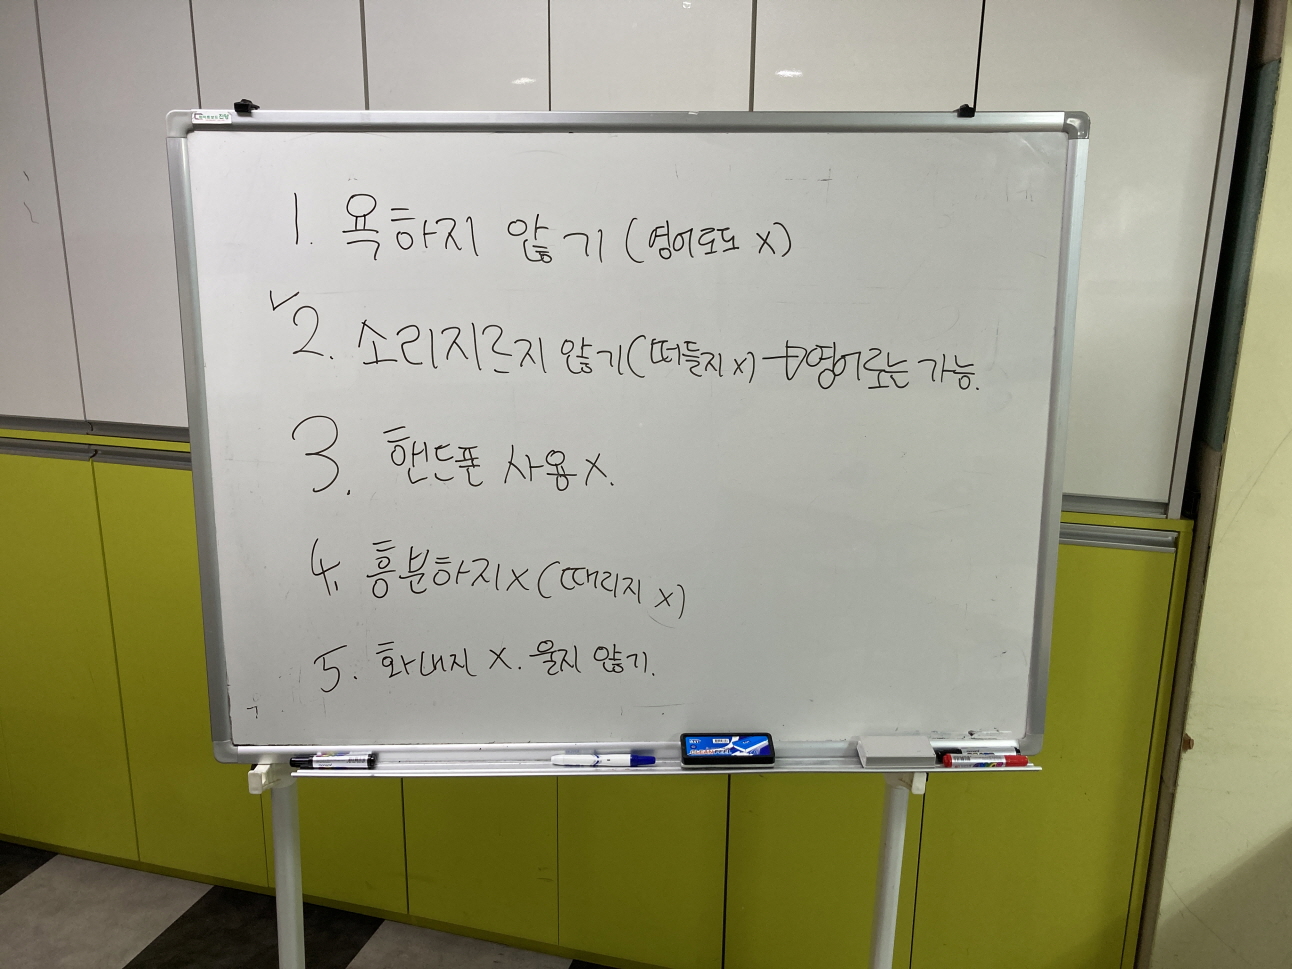 1. 욕하지 않기 (영어로도 X)
✓2. 소리지르지 않기 (떠들지 x) → 영어로는 가능.
3. 핸드폰 사용 X.
4. 흥분하지 x (때리지 x)
5. 화내지 X. 울지 않기.